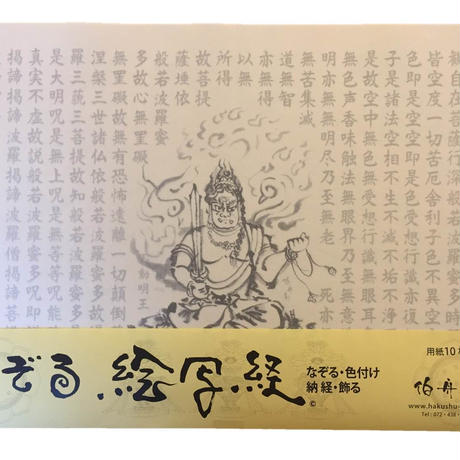 観自在菩薩行深般若
皆空度一切苦厄舎利子色不異空
色即是空空即是色受想行識亦復
子是諸法空相不生不滅不垢不浄
是故空中無色無受想行識無眼耳
無色声香味触法無眼界乃至無意
明亦無無明尽乃至無老死亦
無苦集滅
道無智
亦無得
以無
所得
故菩提
薩埵依
多故心無罣礙
無罣礙故無有恐怖遠離一切顛倒
涅槃三世諸仏依般若波羅蜜多故
羅三藐三菩提故知般若波羅蜜多
是大明呪是無上呪是無等等呪
真実不虚故説般若波羅蜜多呪即説
掲諦掲諦波羅掲諦波羅僧掲諦菩
動明王
ぞる絵写経
©
なぞる・色付け
納経・飾る
用紙10
伯舟
www.hakushu-
Tel:072-438-